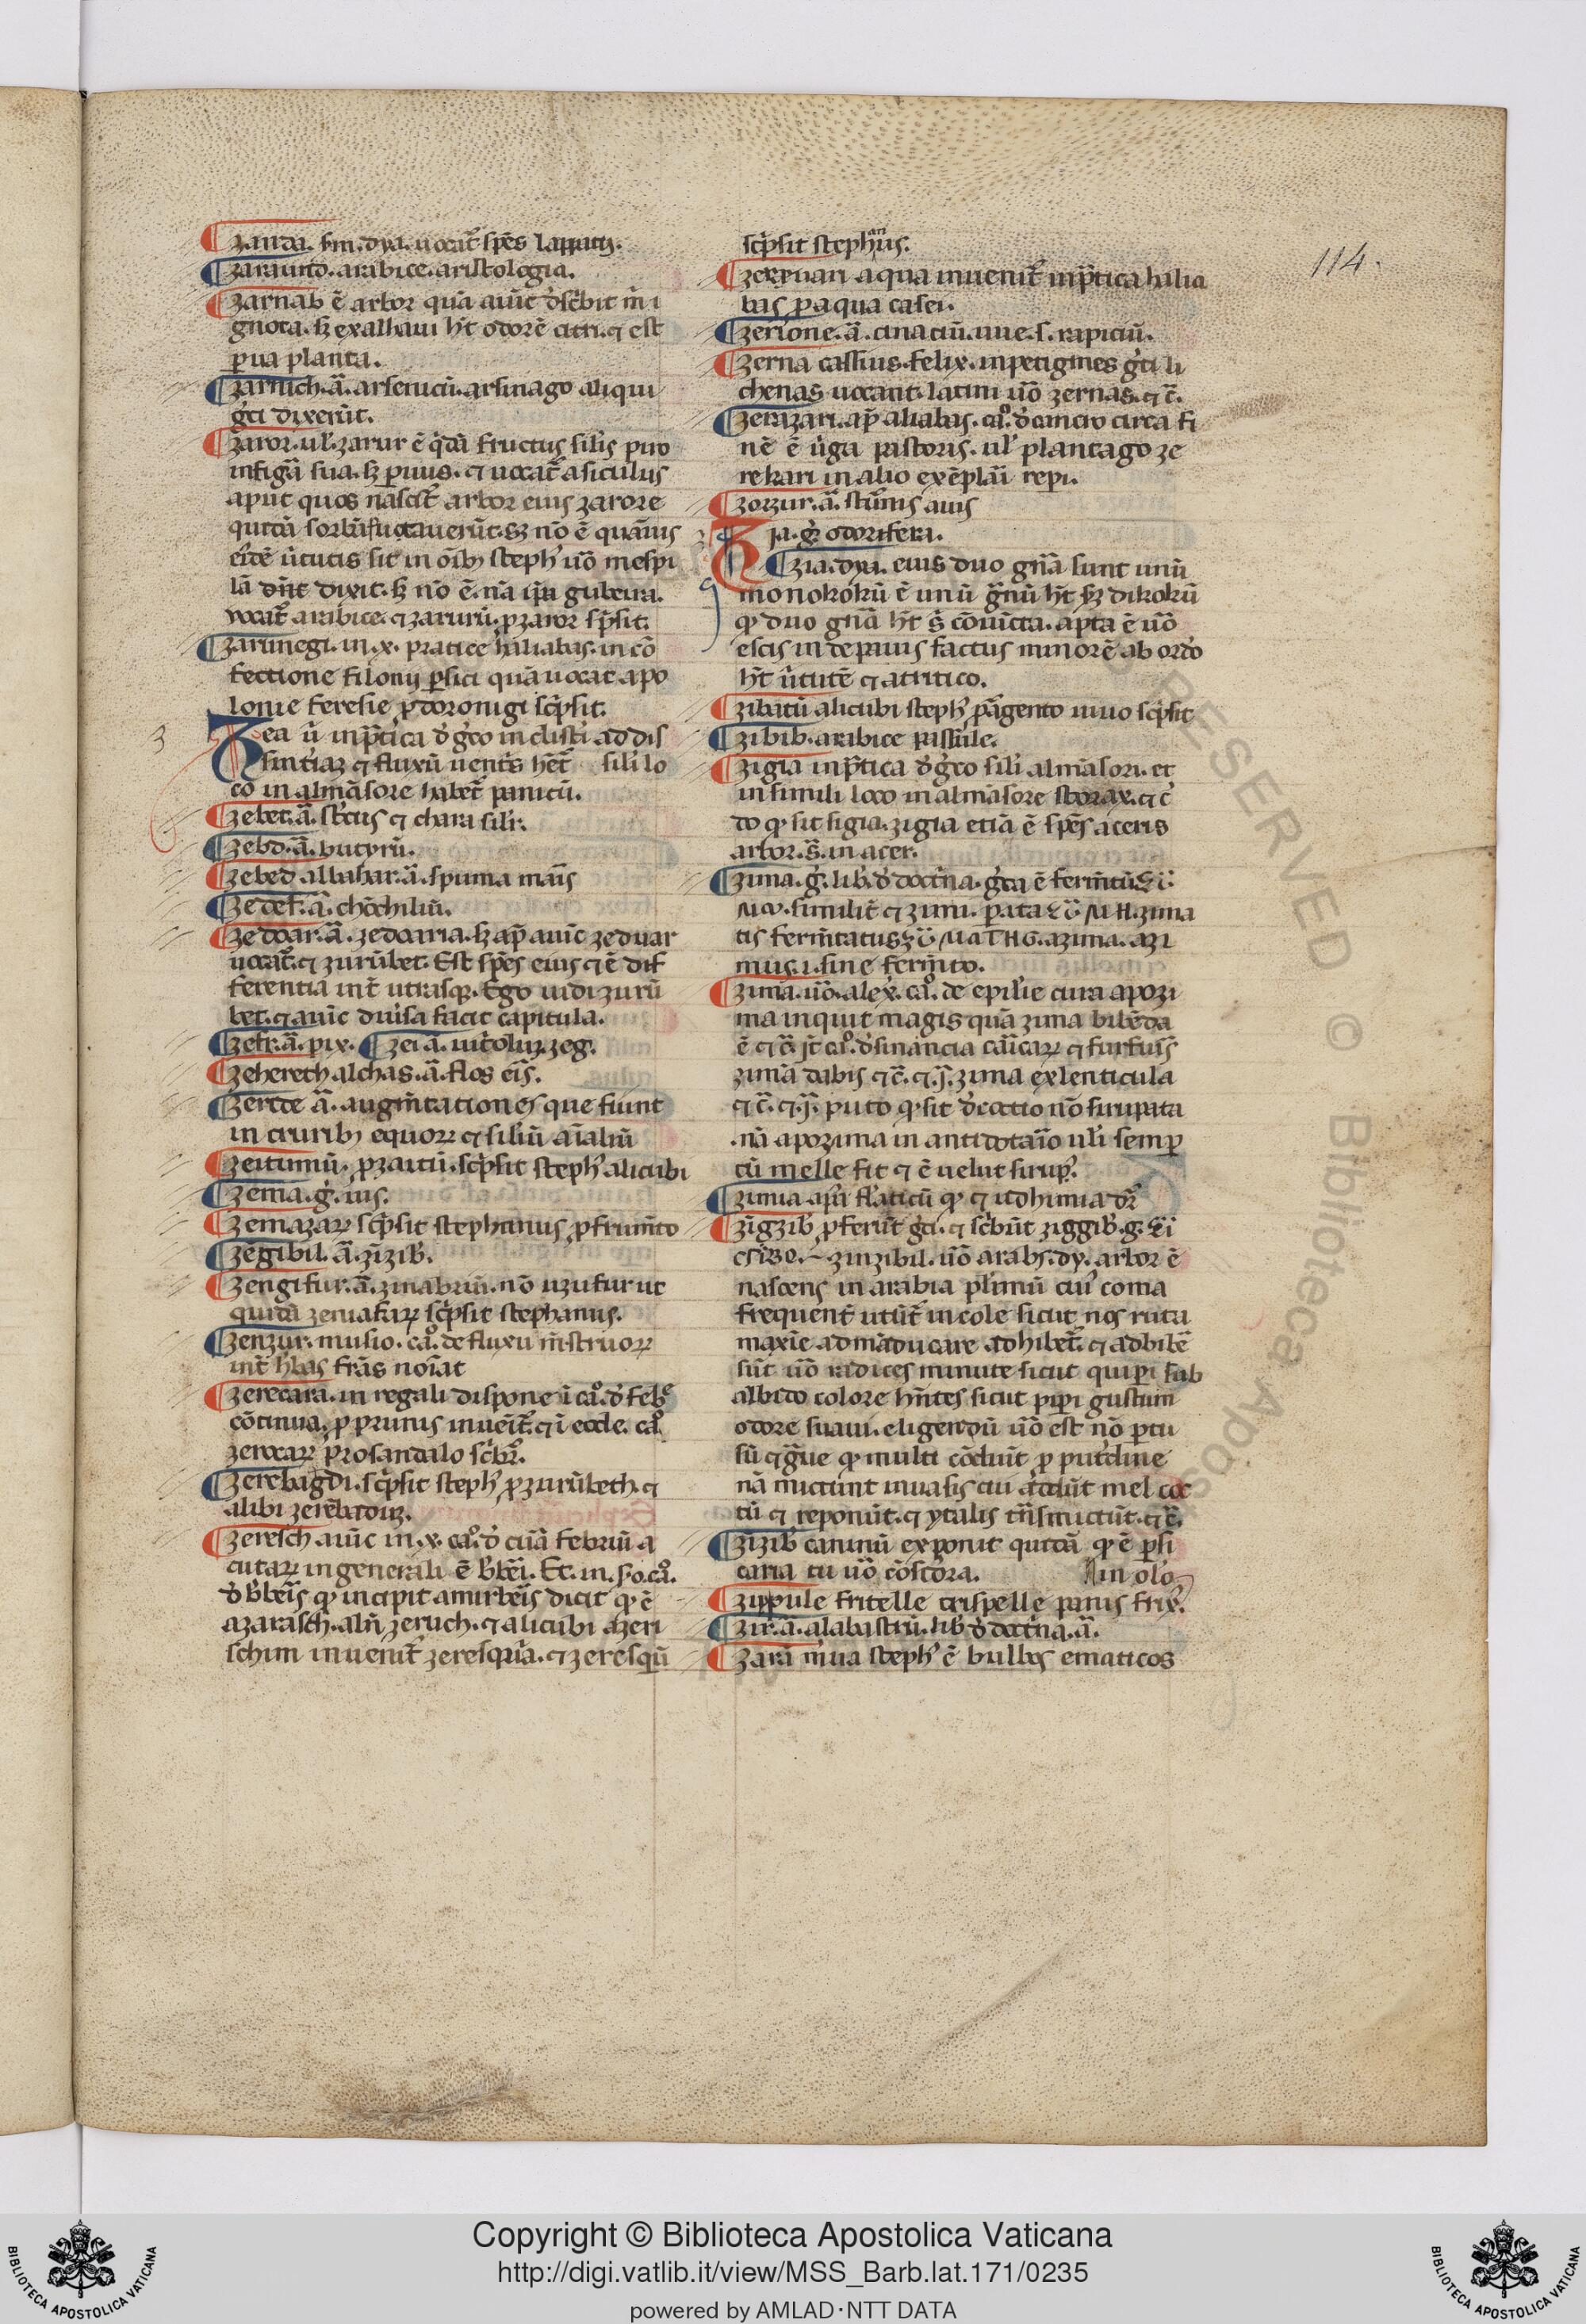 114.
zanda. scđm. dya. uocat̃ sp̃es lappatij.
zaraund. arabice. aristologia.
zarnab ẽ arbor quã auic̃ descͥbit m̃ i
gnota. sꝫ exalhaui hꝫ̃ odorẽ citri. ⁊ est
ꝑua planta.
zarnich. ã. arsenicũ. arsinago aliqui
g̃ci dixerũt.
zaror. ul̃. zarur ẽ q̃dã fructus silĩs piro
in figᵃ̃ sua. sꝫ ꝑuus. ⁊ uocat̃ a siculus
aput quos nascit̃ arbor eius zarore
quidã sorbũ putauerũt. sꝫ nõ ẽ quãuis
eiꝰdẽ ũtutis sit in oĩbꝫ steph̃ uõ mespi
lũ dixit. sꝫ nõ ẽ. nã
uocat̃ arabice. ⁊ zarurũ. ꝓ zaror sc̃psit.
zarunegi. in. x. pratice haliabas. in cõ
fectione filonij ꝑsici quã uocat apo
lonie feresie ꝓ doronigi sc̃psit.
Zea ũ in pᵃ̃tica đ g̃co in clisti ad dis
sintiaꝝ ⁊ fluxũ uentͥs hẽt sili lo
co in almãsore habet̃ panicũ.
zebet. ã. st̃cus ⁊ chara silr̃.
zebd. ã. butyrũ.
zebed albahar. ã. spuma maĩs
zedef. ã. chõchiliũ.
zedoar. ã. zedoaria. sꝫ ap̃ auic̃ zeduar
uocat̃. ⁊ zurũbet. Est sp̃es eius ⁊ ẽ dif
ferentia int̃ utrasqꝫ. Ego uidi zurũ
bet. ⁊ auic̃ diuͥsa facit capitula.
zeft. ã. pix. zei ã. uit̃olũ. zeg.
zeherech alchas. ã. flos eĩs.
zerde ã. augm̃tationes que fiunt
in cruribꝫ equoꝝ ⁊ siliũ aĩaliũ
zeitunũ. ꝓ zaitũ. sc̃psit steph̃ alicubi
zema. g̃. ius.
zemazaꝝ sc̃psit stephanus ꝓ frum̃to
zegibil. ã. zĩzib̃.
zengifur. ã. zinabriũ. nõ uzufur ut
quidã zeniafaꝝ sc̃psit stephanus.
zenzur. musio. caᵒ. de fluxu m̃struoꝝ
int̃ h̃bas frᵃ̃s noĩat
zerecara. in regali dispone ĩ caᵒ. đ feb̃
cõtinua. ꝓ prunis inueĩt̃. ⁊ ĩ eode. caᵒ.
zerocaꝝ ꝓ rosandalo scͥbr̃.
zerebagdi. sc̃psit steph̃ ꝓ zurũbeth. ⁊
alibi
zeresch auic̃ in. x. caᵒ. đ cura febriũ a
cutaꝝ in generali ẽ b̃bẽi. Et. in. s̃o. caᵒ.
đ b̃beĩs qͥ incipit amirbeĩs dicit qͥ ẽ
azarasch̃. alm̃ zeruch. ⁊ alicubi azeri
schim inuenit̃ zeresquia. ⁊ zeresqũ
sc̃psit stephanus.
aqua inuenit̃ in pᵃ̃tica halia
bas ꝓ aqua casei.
zerione. ã. cinaciũ. uue. s. rapiciũ.
zerna cassius. felix. in petigines g̃ci li
chenas uocant. latini uõ zernas. ⁊ c̃.
zerazari. ap̃ aliabas. caᵒ. đ cancro circa fi
nẽ ẽ ũga pastoris. ul̃ plantago ze
rekari in alio exẽplaĩ reperi.
zorzur. ã. sturnus auis
Zia. g̃. odorifera.
zia. dya. eius duo gñã sunt unũ
monokokũ ẽ unũ grᵃ̃nũ hꝫ̃ sꝫ dikokũ
qͥ duo grᵃ̃nã hꝫ̃ s̃ cõiũcta. apta ẽ uõ
escis inde panis factus minorẽ ab ordo
hꝫ̃ ũtutẽ ⁊ atritico.
zibatũ alicubi steph̃ ꝓ ãgento uiuo sc̃psit
zibib. arabice passule.
zigia in pᵃ̃tica đ g̃co sili almãsori. et
in simili loco in almãsore storax. ⁊ c̃
do qͥ sit sigia. zigia etiã ẽ sp̃es aceris
arbor. s̃. in acer.
zima. g̃. lib̃. đ doctͥna. g̃ca ẽ ferm̃tũ. ξι
μω. similit̃ ⁊ zimi. ꝑata ξι μη. zima
tis ferm̃tatus ξι ματης. azima. azi
mus. i. sine ferm̃to.
zima. uõ. alex̃. caᵒ. de epilĩe cura apozi
ma inquit magis quã zima bibẽda
ẽ ⁊ c̃. it̃ caᵒ. đ sinancia caĩcaꝝ ⁊ furfuĩs
zimã dabis ⁊ c̃. ⁊ ꝫ̃. zima ex lenticula
⁊ c̃. ⁊ ꝫ̃. puto qͥ sit đcoctio nõ sirupata
. nã apozima in antidotaĩo uĺi semꝑ
cũ melle fit ⁊ ẽ uelut sirupꝰ.
zimia apũ qͥ ⁊ dr̃
zĩgzib̃ ꝓferũt g̃ci. ⁊ sc̃bũt ziggib̃. g. ξι
zinzibil. uõ arabs. dy. arbor ẽ
nascens in arabia pl̃imũ cuiꝰ coma
frequent̃ utũt̃ incole sicut nos ruta
maxĩe ad mãducare adhibet̃. ⁊ ad bibẽ
sũt uõ radices minute sicut quiperi sub
albido colore hñtes sicut piperi gustum
odore suaui. eligendũ uõ est nõ ꝑtu
sũ ⁊ g̃ue qͥ multi cõdiũt ꝓ put̃dine
nã mictunt in uasis cui addũt mel coc
tũ ⁊ reponũt. ⁊ ytalis trᵃ̃smictũt. ⁊ c̃.
zĩzib̃ caninũ exponit quidã qͥ ẽ ꝑsi
caria tu uõ cõsidera. in oĺo
zippule fritelle crispelle panis frix̃.
zir. ã. alabastrũ. lib̃. đ doctͥna. ã.
zarã mͥua steph̃ ẽ bulbos ematicos
RESERVED © Biblioteca Apos
Copyright © Biblioteca Apostolica Vaticana
http://digi.vatlib.it/view/MSS_Barb.lat.171/0235
powered by AMLAD·NTT DATA
BIBLIOTECA APOSTOLICA VATICANA
BIBLIOTECA APOSTOLICA VATICANA